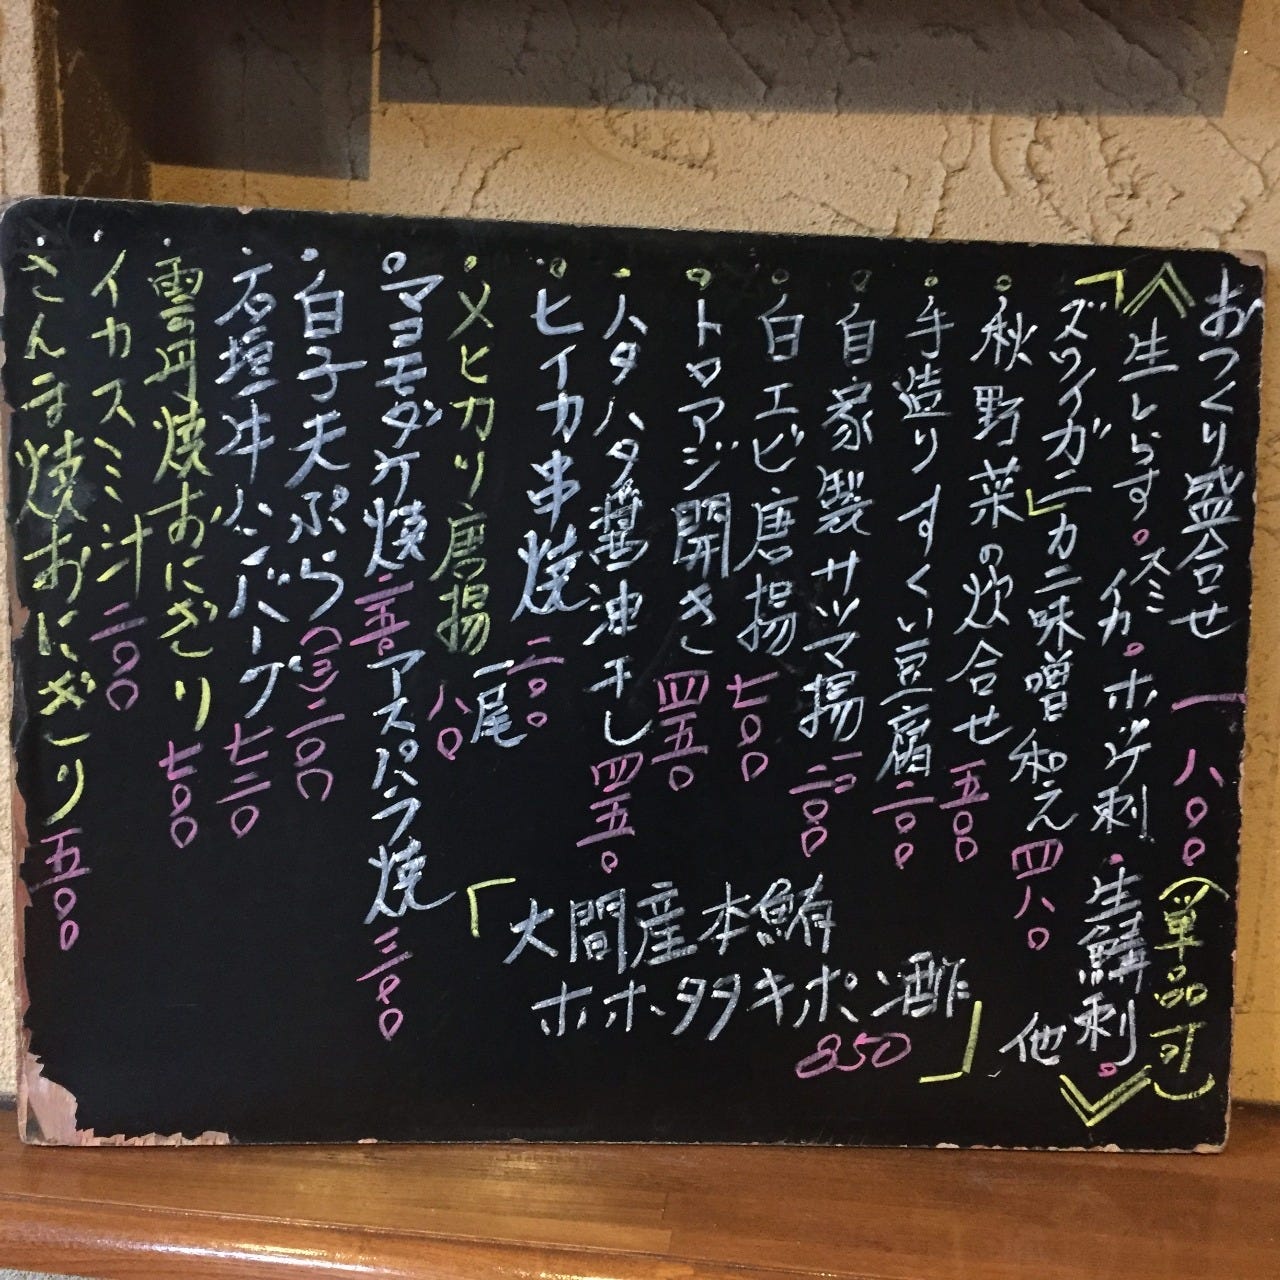 おつくり盛合せ 一八〇〇(単品可)
《生しらす。スミイカ。ホッケ刺・生鯖刺。他》
「ズワイガニ」カニ味噌和え 四八〇
。秋野菜の炊合せ 五〇〇
。手造りすくい豆腐 二〇〇
。自家製サツマ揚 二〇〇
。白エビ唐揚 七〇〇
。トロアジ開き 四五〇
。ハタハタ醤油干し 四五〇
。ヒイカ串焼 二〇〇
。メヒカリ唐揚 一尾 八〇
。マヨモダケ焼 アスパラ焼 三八〇
。白子天ぷら(〃)二〇〇
・石垣牛ハンバーグ 七二〇
・雲丹焼おにぎり 七〇〇
・イカスミ汁 二〇〇
・さんま焼おにぎり 五〇〇
「大間産本鮪
ホホタタキポン酢 850」